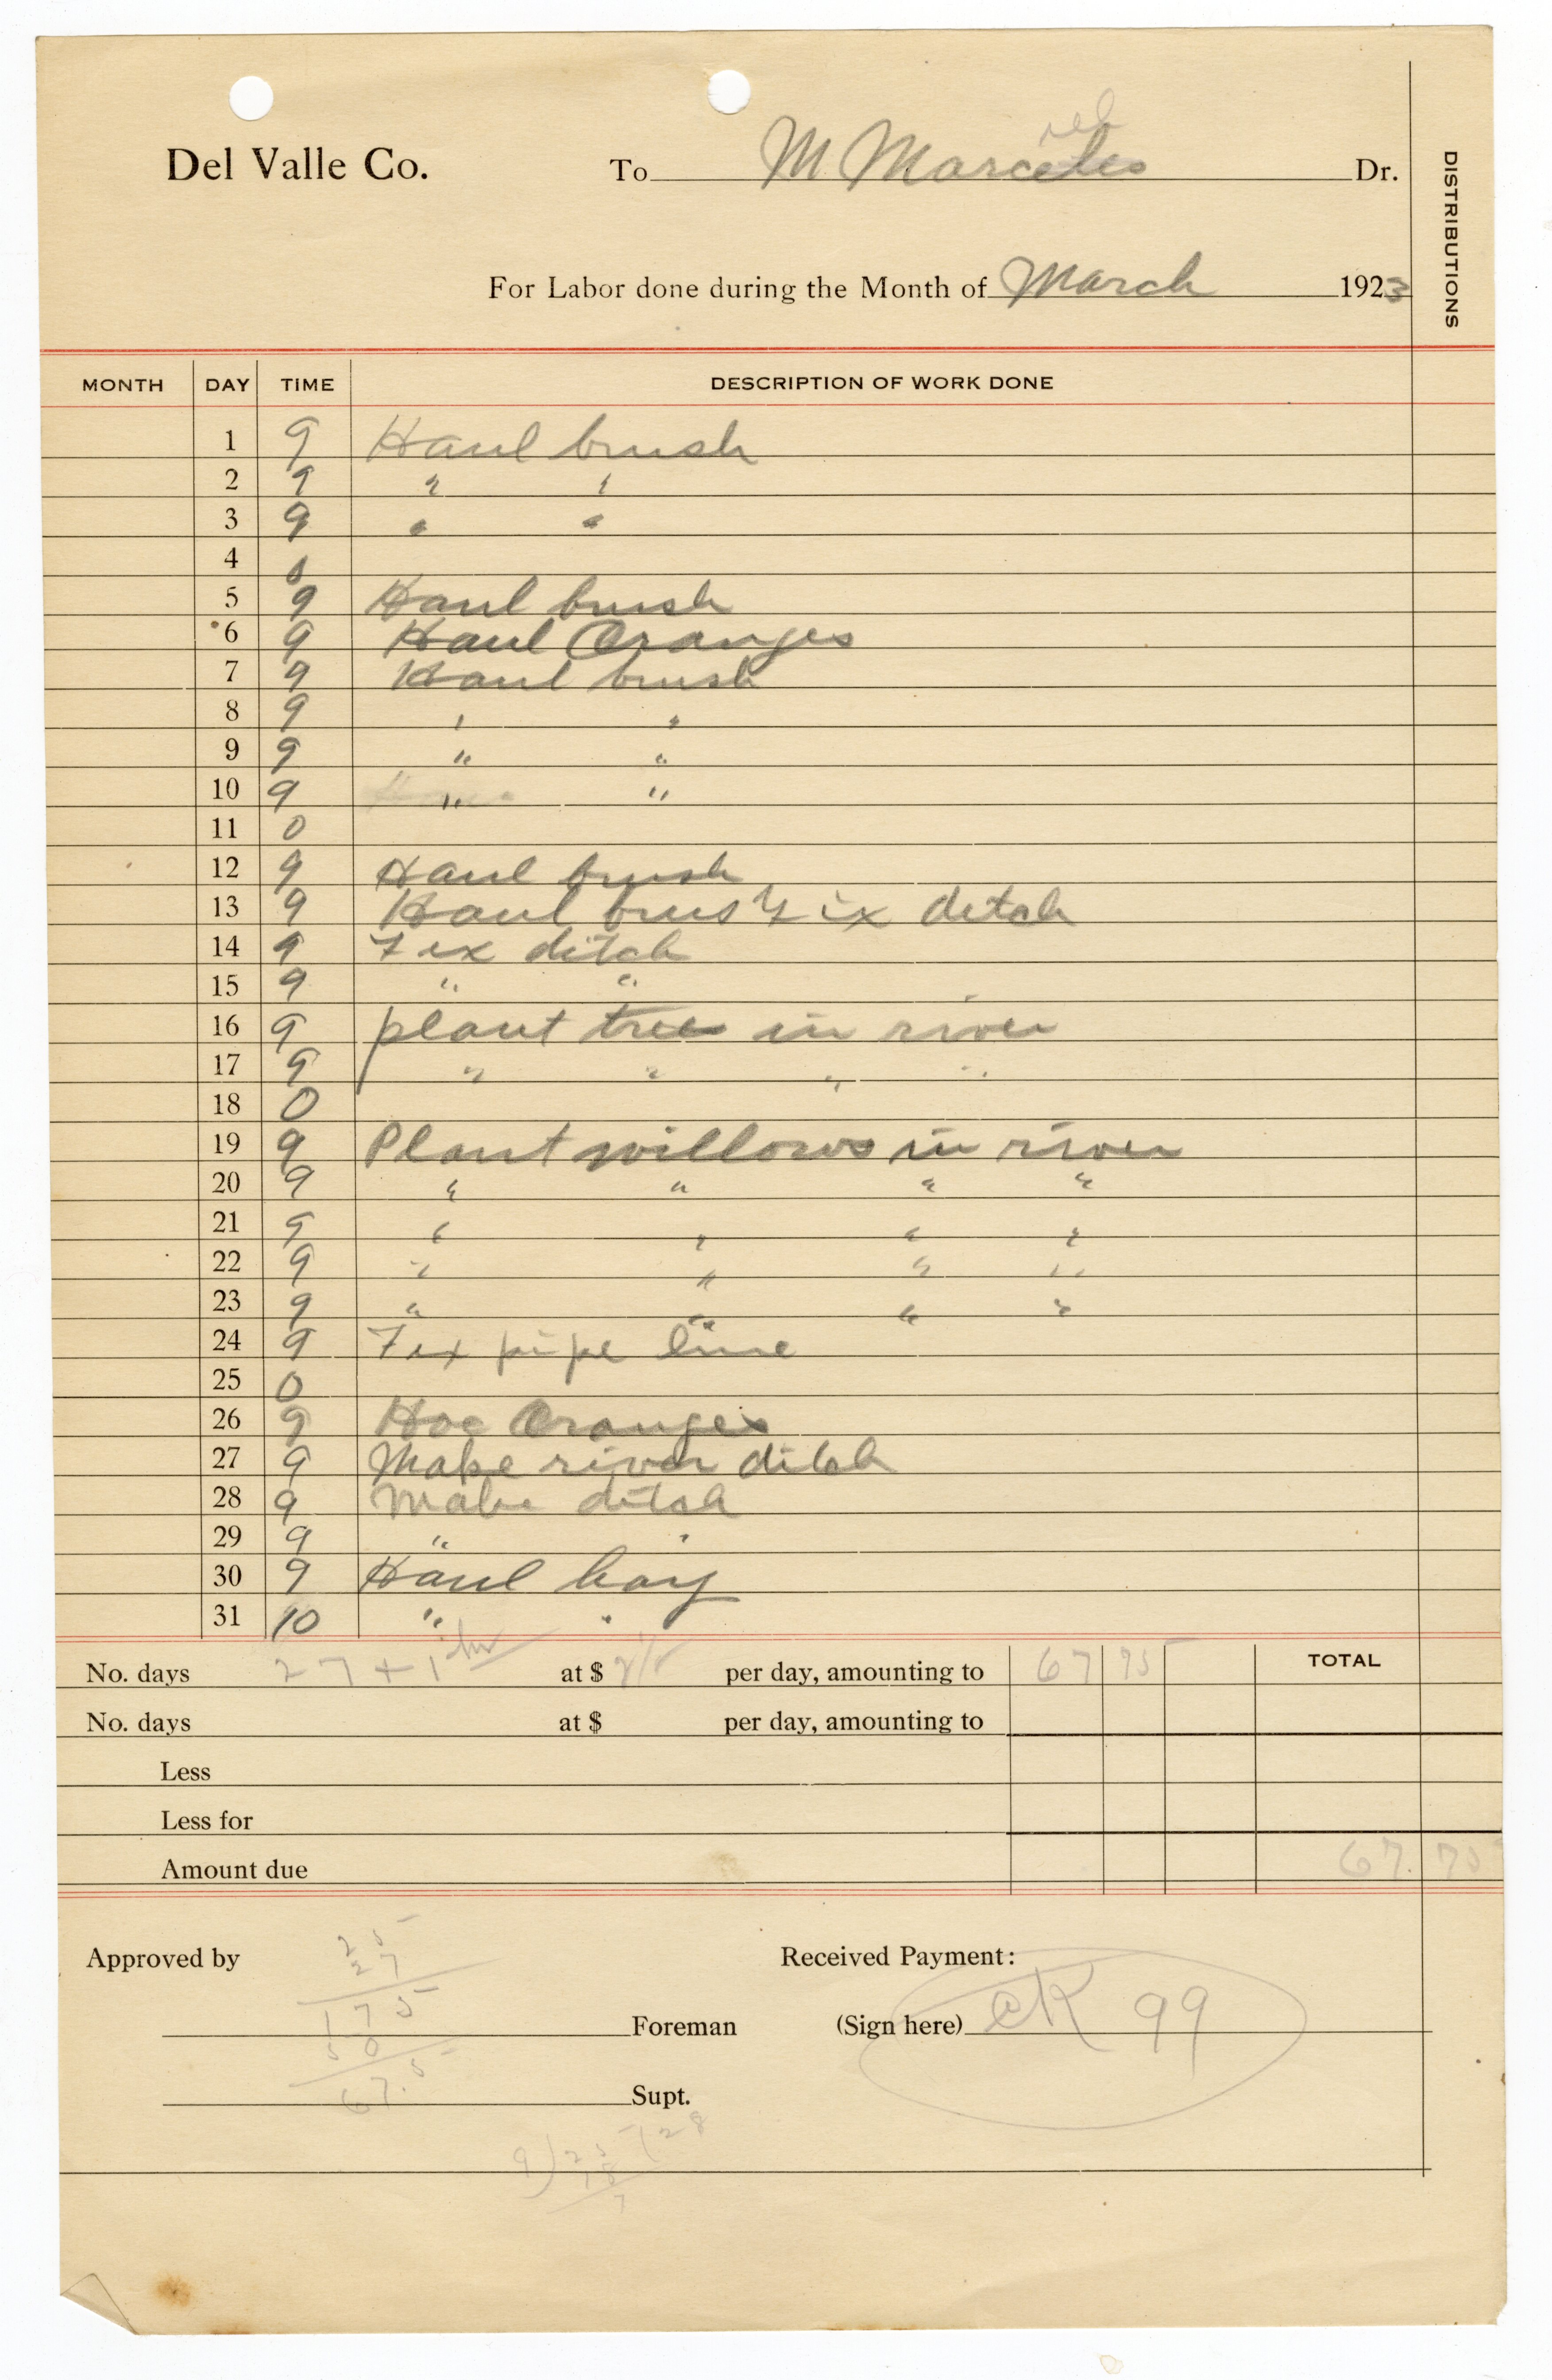 Del Valle Co. To M Marceles Dr.
rel
For Labor done during the Month of March 1923
DISTRIBUTIONS
MONTH DAY TIME DESCRIPTION OF WORK DONE
1 9 Haul brush
2 9 " "
3 9 " "
4 0
5 9 Haul brush
6 9 Haul Oranges
7 9 Haul brush
8 9 " "
9 9 " "
10 9 " "
11 0
12 9 Haul brush
13 9 Haul brus Fix ditch
14 9 Fix ditch
15 9 " "
16 9 plant tree in river
17 9 " " " "
18 0
19 9 Plant willows in river
20 9 " " " "
21 9 " " " "
22 9 " " " "
23 9 " " " "
24 9 Fix pipe line
25 0
26 9 Hoe Oranges
27 9 Make river ditch
28 9 Make ditch
29 9 " "
30 9 Haul hay
31 10 " "
No. days 27 + 1 hr at $ 2 1/2 per day, amounting to 67 75 TOTAL
No. days at $ per day, amounting to
Less
Less for
Amount due 67.75
Approved by Received Payment:
25
27
175
Foreman (Sign here) CK 99
50
67.5
Supt.
9)25(28
18
7